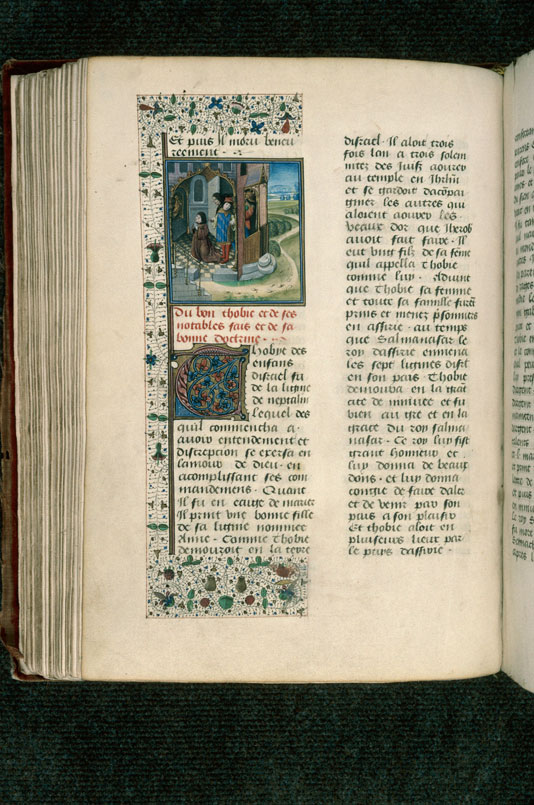 Et puis il moru beneu
reement
Du bon thobie et de ses
notables fais et de sa
bonne doctrine
Thobye des
enfans
disrael fu
de la lignie
de neptalin
lequel des
quil commencha a
avoir entendement et
discrecion se exersa en
lamour de dieu en
acomplissant ses com
mandemens Quant
il fu en eaige de marier
Il print une bonne fille
de sa lignie nommee
Anne Comme thobie
demouroit en la terre
disrael Il aloit trois
fois lan a trois solem
nitez des Juifz aourer
au temple en Jhrlm
et se gardoit dacompai
gnier les autres qui
aloient aourer les
veaux dor que Iherob
avoit fait faire Il
eut ung filz de sa feme
quil appella Thobie
comme luy Advint
que Thobie sa femme
et toute sa famille furet
prins et menez prisonniers
en assirie au temps
que Salmanasar le
roy dassirie enmena
les sept lignies disrl
en son pais Thobie
demoura en la cit
cite de ninivee et fu
bien au gre et en la
grace du roy salma
nasar Ce roy luy fist
grant honneur et
luy donna de beaux
dons et luy donna
congie de faire daler
et de venir par son
pais a son plaisir
Et thobie aloit en
pluiseurs lieux par
le pays dassirie